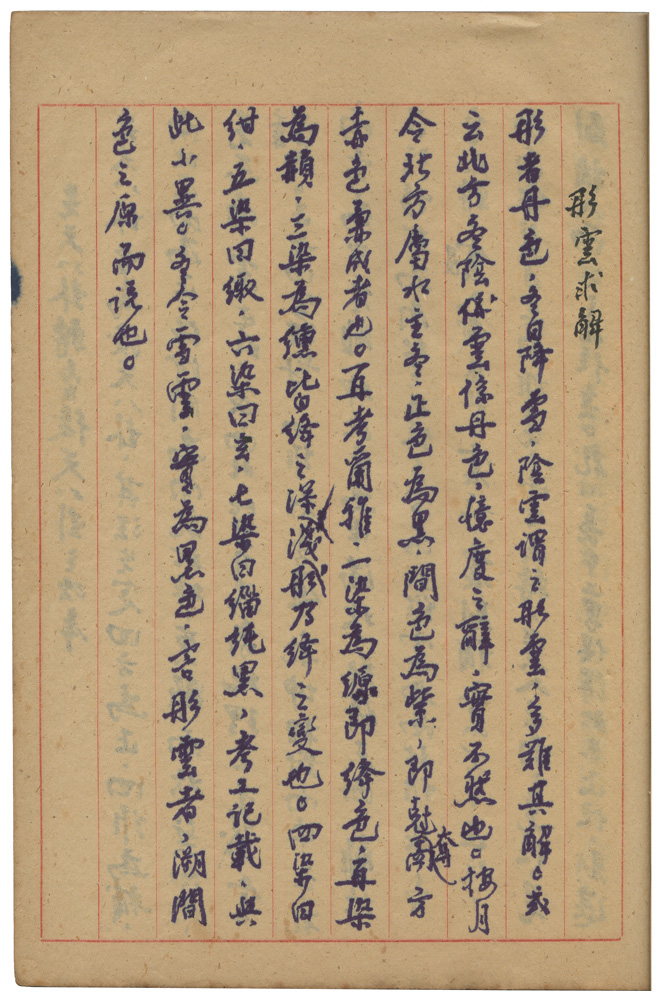 彤雲求解
彤者丹色，冬日降雪，陰雲謂之彤雲，多難其解。或
云北方冬陰，伏雲係丹色，憶度之辭，實不然也。按月
令北方屬水主冬，正色為黑，間色為紫，即南方
赤色而成者也。再考爾雅，一染為縓即絳色，再染
為赬，三染為纁，皆絳之深淺，乃絳之變也。四染曰
紺，五染曰緅，六染曰玄，七染曰緇純黑，考工記載，與
此小異。冬令雪雲，實為黑色，言彤雲者，溯間
色之原而說也。